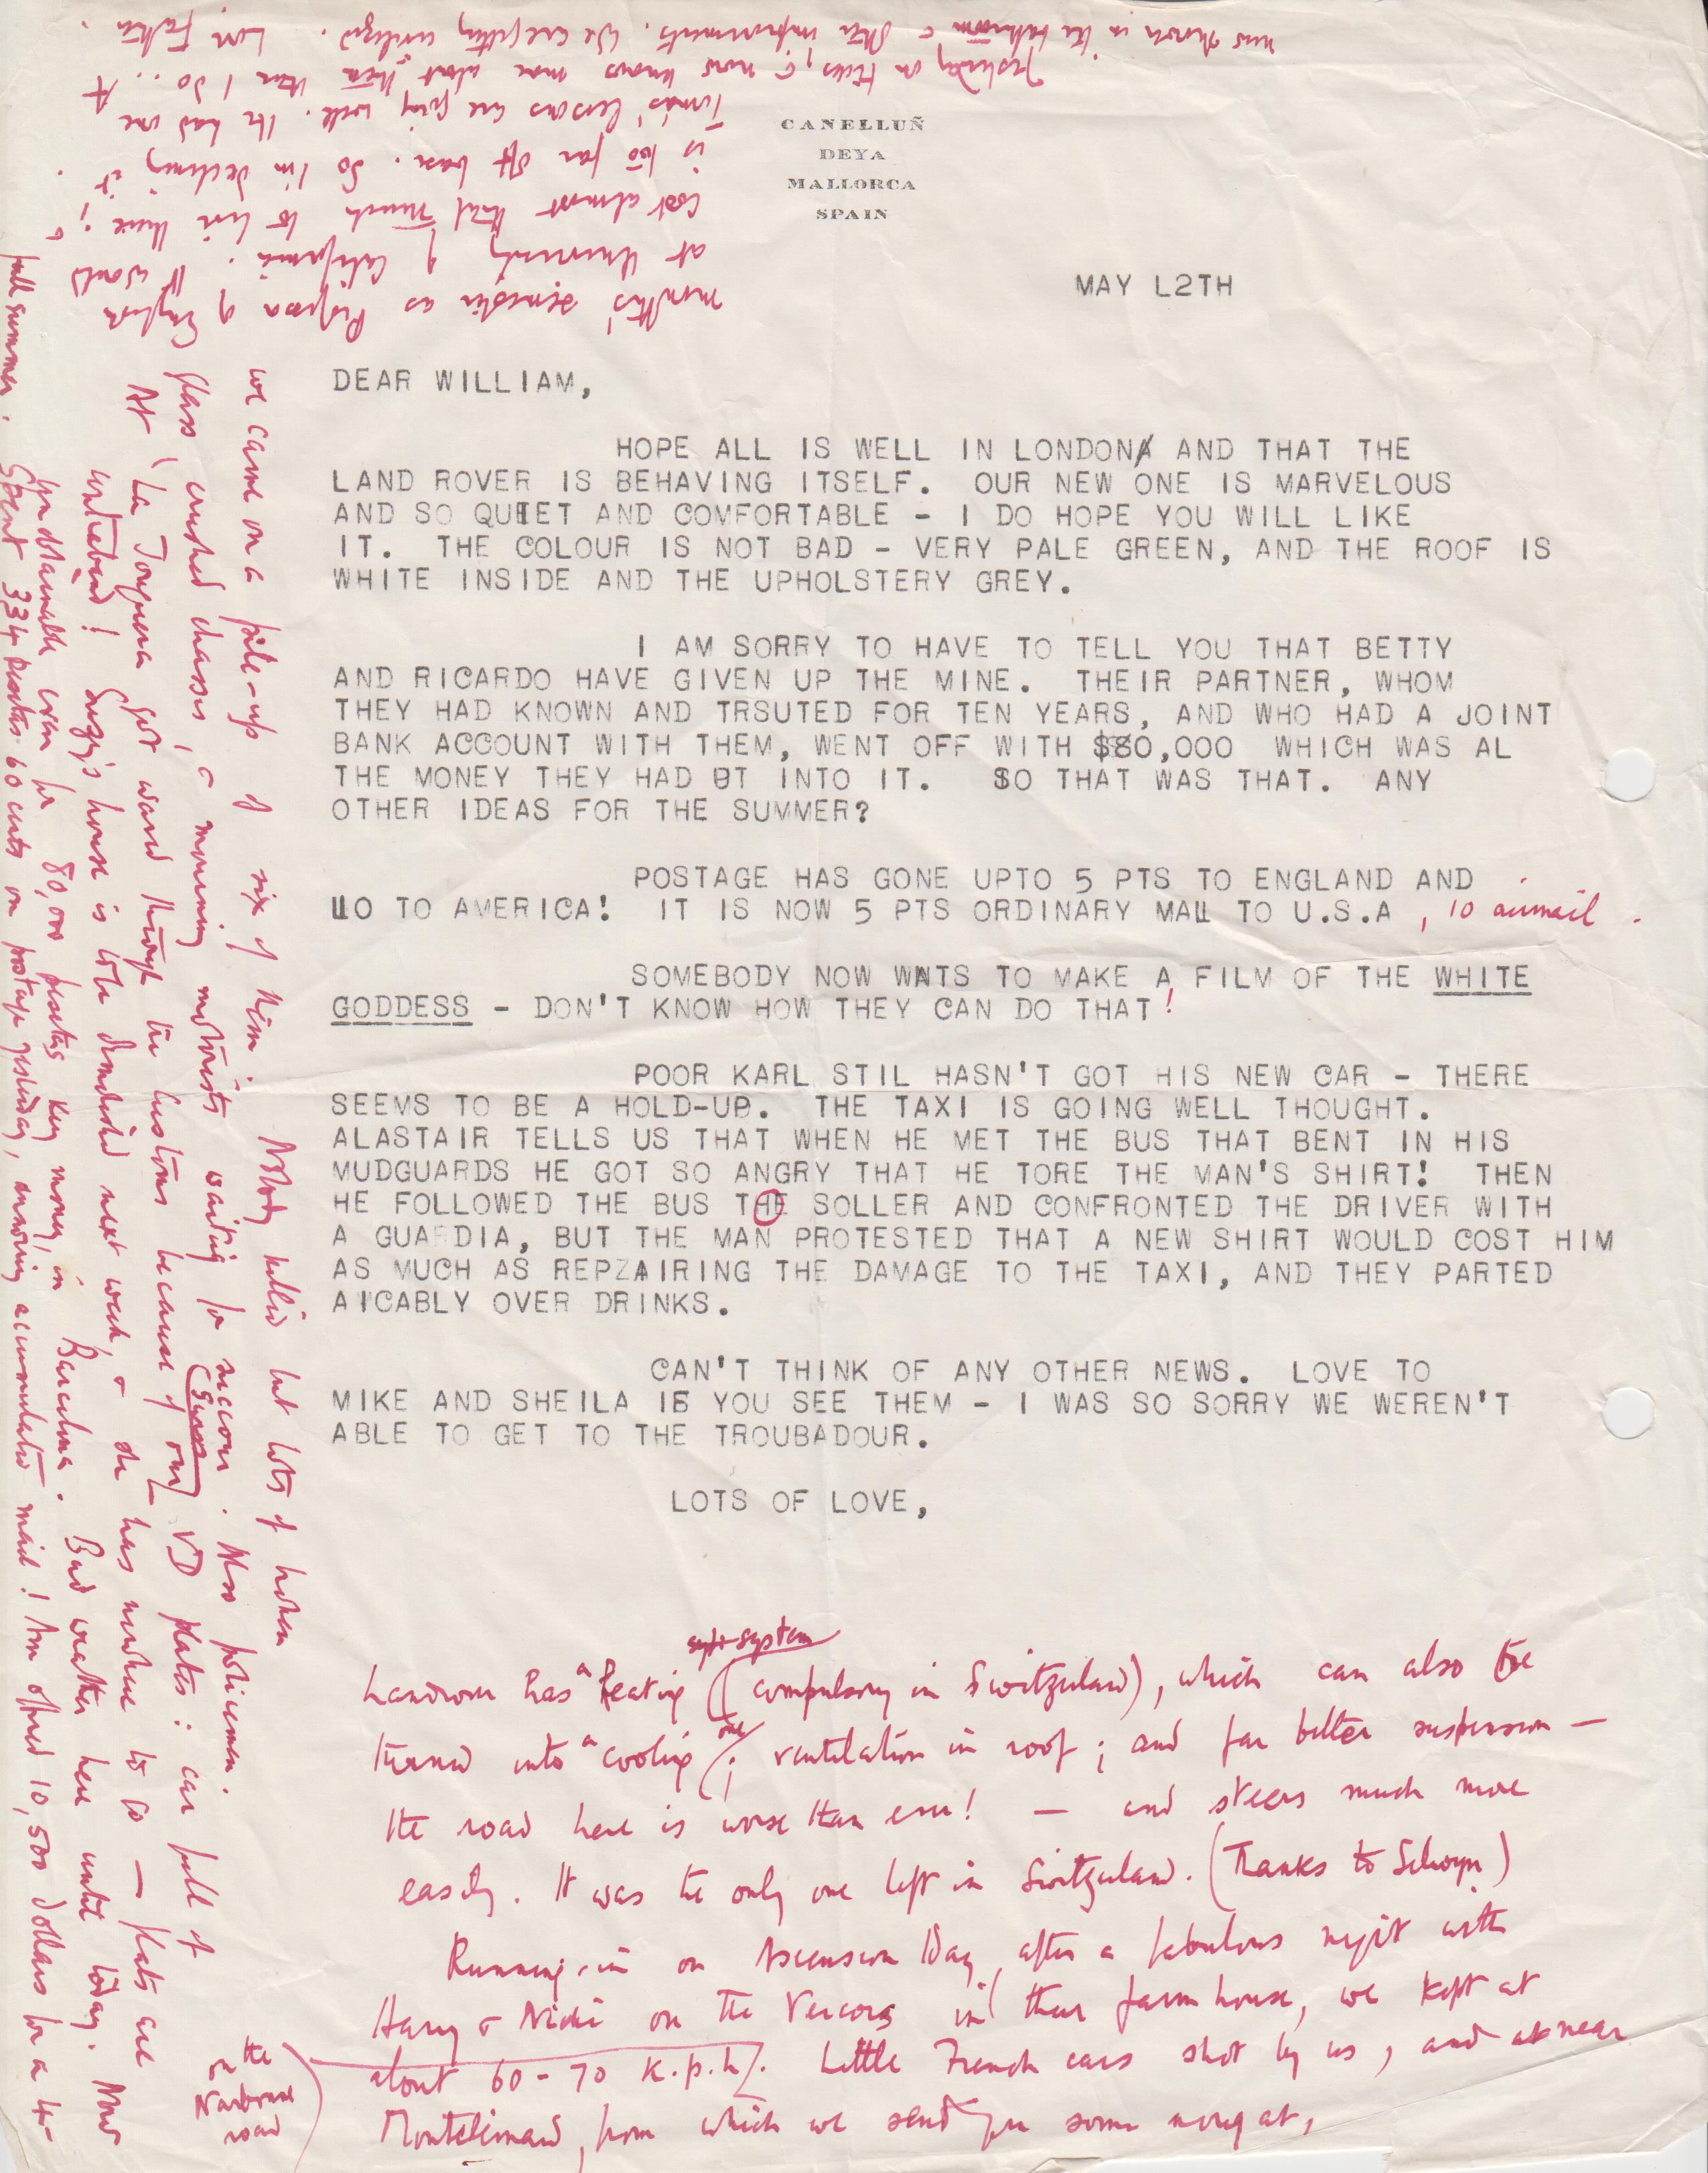 CANELLUÑ
DEYA
MALLORCA
SPAIN
MAY L2TH
DEAR WILLIAM,
HOPE ALL IS WELL IN LONDON AND THAT THE
LAND ROVER IS BEHAVING ITSELF. OUR NEW ONE IS MARVELOUS
AND SO QUIET AND COMFORTABLE - I DO HOPE YOU WILL LIKE
IT. THE COLOUR IS NOT BAD - VERY PALE GREEN, AND THE ROOF IS
WHITE INSIDE AND THE UPHOLSTERY GREY.
I AM SORRY TO HAVE TO TELL YOU THAT BETTY
AND RICARDO HAVE GIVEN UP THE MINE. THEIR PARTNER, WHOM
THEY HAD KNOWN AND TRSUTED FOR TEN YEARS, AND WHO HAD A JOINT
BANK ACCOUNT WITH THEM, WENT OFF WITH $80,000 WHICH WAS AL
THE MONEY THEY HAD UT INTO IT. SO THAT WAS THAT. ANY
OTHER IDEAS FOR THE SUMMER?
POSTAGE HAS GONE UPTO 5 PTS TO ENGLAND AND
10 TO AMERICA! IT IS NOW 5 PTS ORDINARY MAIL TO U.S.A , 10 airmail .
SOMEBODY NOW WANTS TO MAKE A FILM OF THE WHITE
GODDESS - DON'T KNOW HOW THEY CAN DO THAT!
POOR KARL STIL HASN'T GOT HIS NEW CAR - THERE
SEEMS TO BE A HOLD-UP. THE TAXI IS GOING WELL THOUGHT.
ALASTAIR TELLS US THAT WHEN HE MET THE BUS THAT BENT IN HIS
MUDGUARDS HE GOT SO ANGRY THAT HE TORE THE MAN'S SHIRT! THEN
HE FOLLOWED THE BUS THE SOLLER AND CONFRONTED THE DRIVER WITH
A GUARDIA, BUT THE MAN PROTESTED THAT A NEW SHIRT WOULD COST HIM
AS MUCH AS REPZAIRING THE DAMAGE TO THE TAXI, AND THEY PARTED
AICABLY OVER DRINKS.
CAN'T THINK OF ANY OTHER NEWS. LOVE TO
MIKE AND SHEILA IF YOU SEE THEM - I WAS SO SORRY WE WEREN'T
ABLE TO GET TO THE TROUBADOUR.
LOTS OF LOVE,
system
Landrover has a heating (compulsory in Switzerland), which can also be
turned into a cooling one; ventilation in roof; and far better suspension —
the road here is worse than ever! — and steers much more
easily. It was the only one left in Switzerland. (Thanks to Selwyn)
Running-in on Ascension Day, after a fabulous night with
Harry & Nicki on the Vercors in their farm house, we kept at
about 60-70 k.p.h. Little French cars shot by us, and at near
Montelimard, from which we send you some nougat,
on the
Narbonne
road
we came on a pile-up of six of them. Nobody killed but lots of broken
glass, crushed chassis, & mourning motorists waiting for succour. Also policemen.
At La Jonquera got waved through the customs because of our VD plates: car full of
contraband! Suzy's house is to be demolished next week, & she has nowhere to go — flats are
unobtainable even for 80,000 pesetas key money, in Barcelona. Bad weather here until today. Now
full summer. Spent 334 pesetas 60 cents on postage yesterday, answering accumulated mail! Am offered 10,500 dollars for a 4-
months' semester as Professor of English
at University of California. It would
cost almost that much to live there; &
is too far off base. So I'm declining it.
Tomas' lessons are going well. He had one
yesterday on ticks, & now knows more about them than I do. A
new in the bathroom & other improvements. We are getting civilized. Love Father.